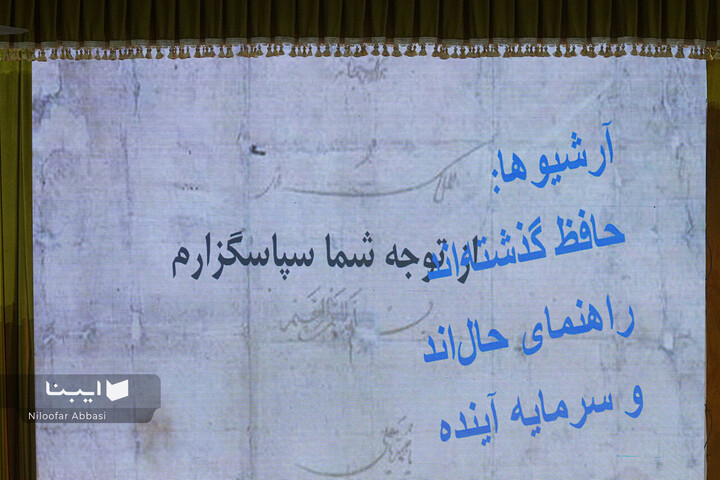 آرشیوها:
حافظ گذشته‌اند
از توجه شما سپاسگزارم
راهنمای حال‌اند
و سرمایه آینده
ایبنا
Niloofar Abbasi